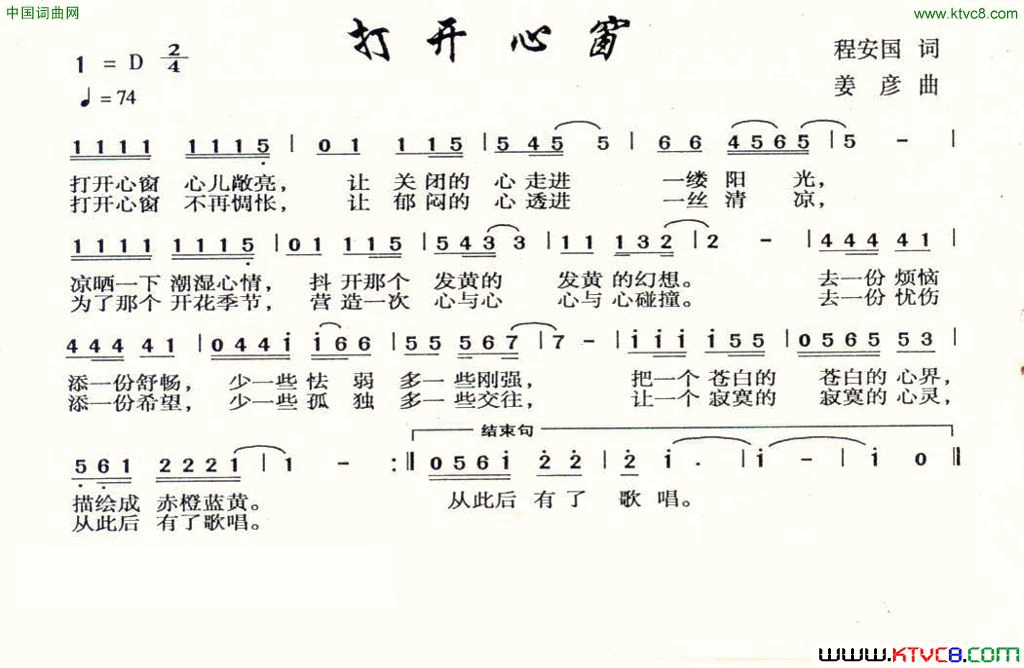 中国词曲网
www.ktvc8.com
打开心窗
1 = D 2/4
程安国 词
姜彦 曲
♩= 74
1111 1115 | 01 115 | 545 5 | 66 4565 | 5 - |
打开心窗 心儿敞亮， 让 关闭的 心走进 一缕阳 光，
打开心窗 不再惆怅， 让 郁闷的 心透进 一丝清 凉，
1111 1115 | 01 115 | 5433 | 11 132 | 2 - | 444 41 |
凉晒一下 潮湿心情， 抖开那个 发黄的 发黄的幻想。 去一份 烦恼
为了那个 开花季节， 营造一次 心与心 心与心碰撞。 去一份 忧伤
444 41 | 044i i66 | 55 567 | 7 - | iii i55 | 0565 53 |
添一份舒畅， 少一些怯 弱 多一些刚强， 把一个 苍白的 苍白的心界，
添一份希望， 少一些孤 独 多一些交往， 让一个 寂寞的 寂寞的心灵，
结束句
561 2221 | 1 - :‖ 056i 22 | 2 i . | i - | i 0 ‖
描绘成 赤橙蓝黄。 从此后 有了 歌唱。
从此后 有了歌唱。
www.KTVC8.com